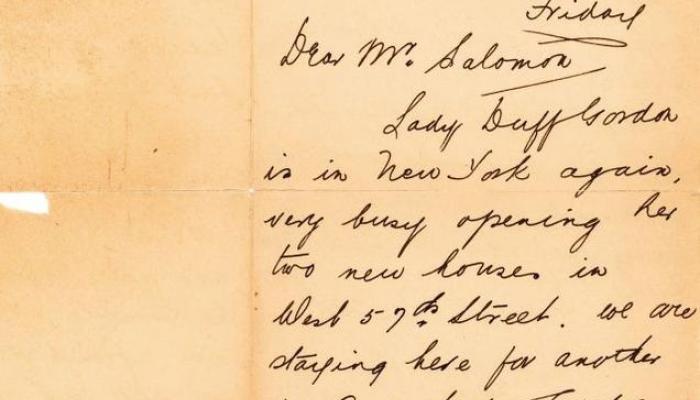 Friday
Dear Mr. Salomon
Lady Duff Gordon
is in New York again,
very busy opening her
two new houses in
West 57th Street. we are
staying here for another